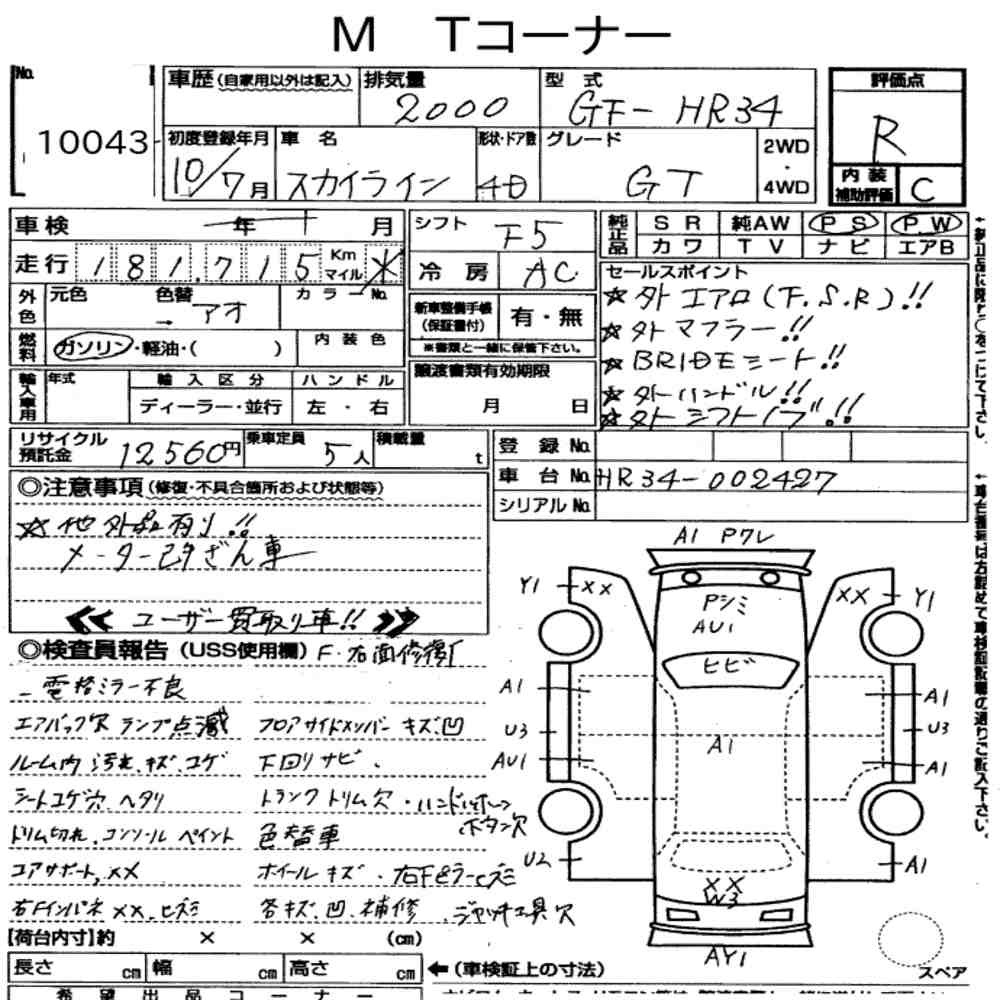 M Tコーナー
No. 10043
車歴(自家用以外は記入) 排気量 2000 型式 GF-HR34 評価点 R
初度登録年月 10/7月 車名 スカイライン 形状・ドア数 4D グレード GT 2WD・4WD
内装補助評価 C
車検 年 月 シフト F5 純正品 SR 純AW PS PW
カワ TV ナビ エアB
走行 181,715 Km マイル ※ 冷房 AC
セールスポイント
☆外エアロ(F.S.R)!!
☆外マフラー!!
☆BRIDEシート!!
☆外ハンドル!!
☆外シフトノブ!!
外色 元色 色替 → アオ カラーNo.
新車整備手帳(保証書付) 有・無
※書類と一緒に保管下さい。
燃料 ガソリン・軽油・( ) 内装色
譲渡書類有効期限 月 日
輸入車用 年式 輸入区分 ハンドル
ディーラー・並行 左・右
リサイクル預託金 12560円 乗車定員 5人 積載量 t
登録No.
車台No. HR34-002427
シリアルNo.
◎注意事項(修復・不具合箇所および状態等)
☆他外品有り!!
メーター改ざん車
≪ユーザー買取り車!!≫
◎検査員報告(USS使用欄) F・右面修復
電格ミラー不良
エアバック欠 ランプ点滅 フロアサイドメンバー キズ凹
ルーム内 汚れ.キズ.コゲ 下回りサビ.
シートコゲ穴 ヘタリ トランクトリム欠・ハンドルホーンボタン欠
トリム切れ.コンソール ペイント 色替車
コアサポート,XX ホイールキズ・右Fピラーヒズミ
右Fインパネ XX.ヒズミ 各キズ.凹.補修.ジャッキ工具欠
【荷台内寸】約 × × (cm)
長さ cm 幅 cm 高さ cm
←(車検証上の寸法)
希望出品コーナー
A1 Pワレ
Y1 XX
XX Y1
Pシミ
AU1
ヒビ
A1
A1
U3
U3
A1
AU1
A1
U2
A1
XX
W3
AY1
スペア